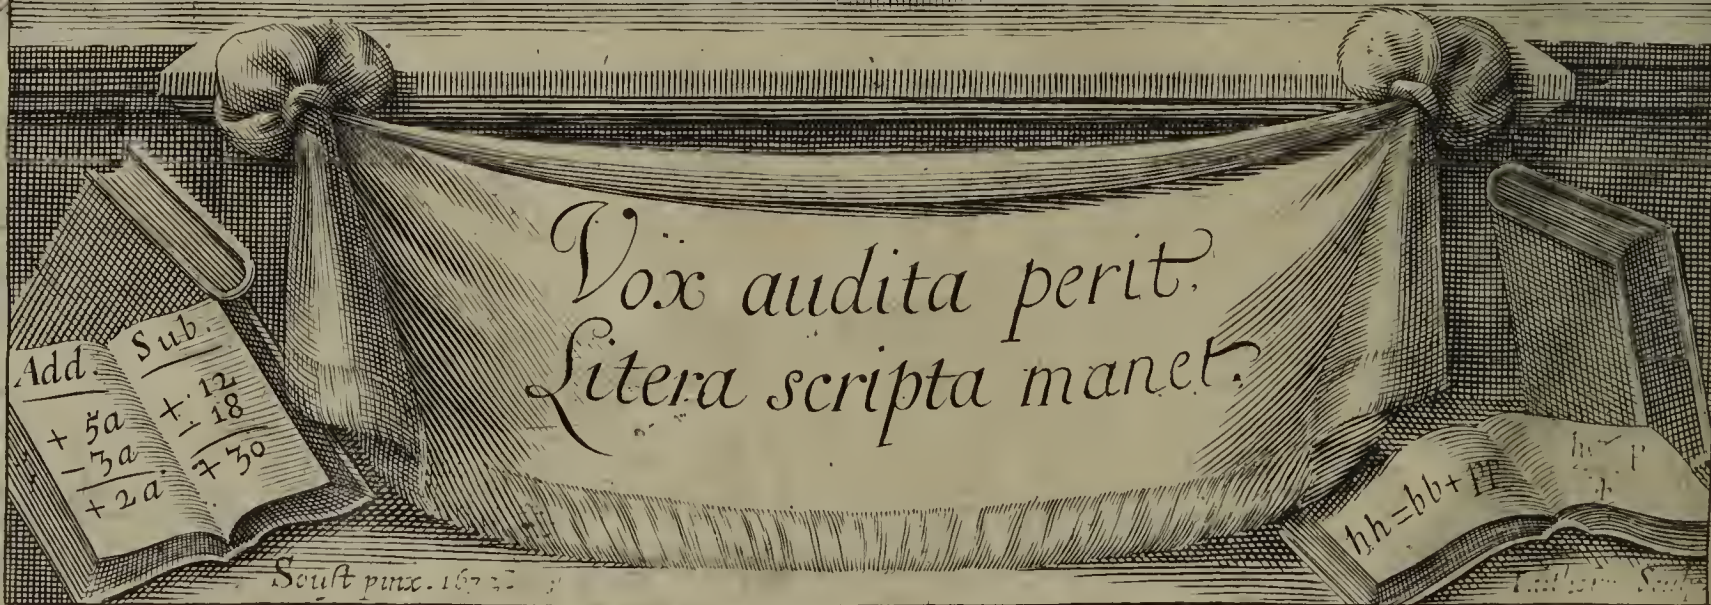 Vox audita perit.
Litera scripta manet.
Add.
+ 5a
- 3a
+ 2a
Sub.
+ 12
- 18
+ 30
hh=bb+pp
pinx. 16